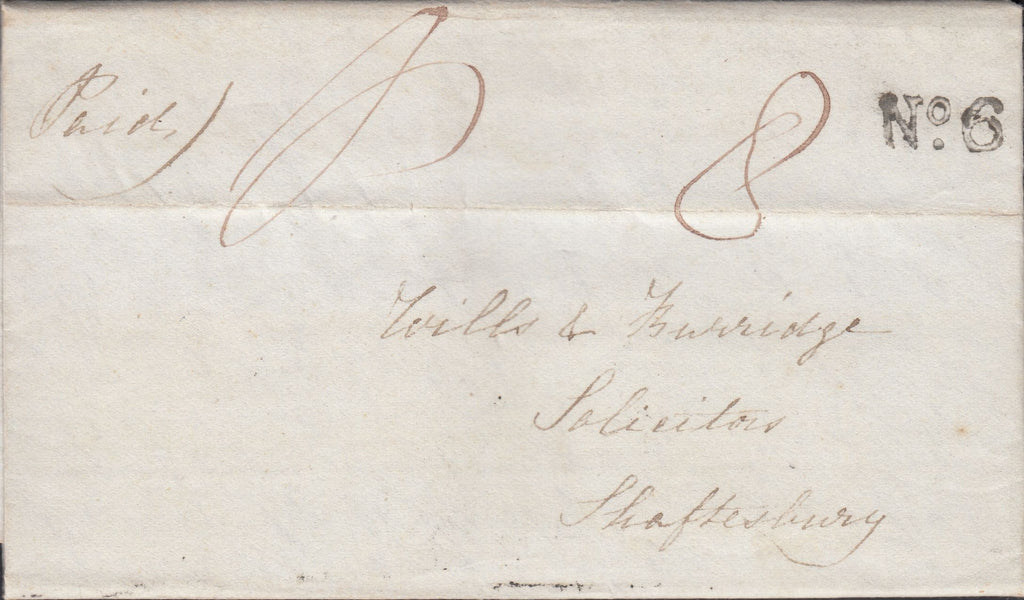 Paid
8
No. 6
Wills & Burridge
Solicitors
Shaftesbury